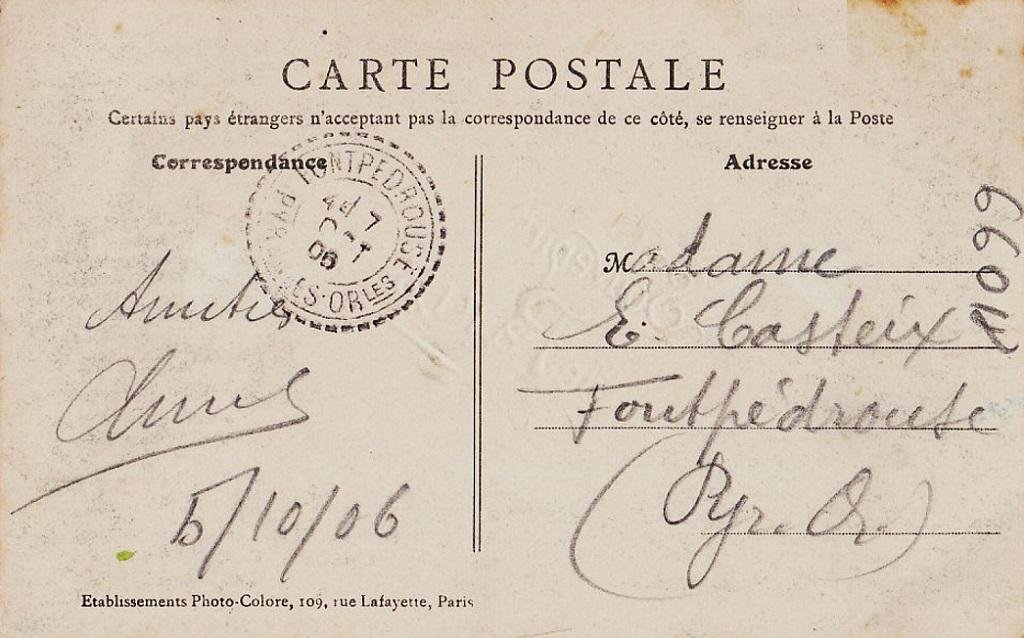 CARTE POSTALE
Certains pays étrangers n'acceptant pas la correspondance de ce côté, se renseigner à la Poste
Correspondance
Adresse
FONTPEDROUSE
7
OCT
06
ES-ORLES
Amitiés
5/10/06
Madame
E. Casteix
Fontpédrouse
(Pyr. Or.)
11099
Etablissements Photo-Colore, 109, rue Lafayette, Paris